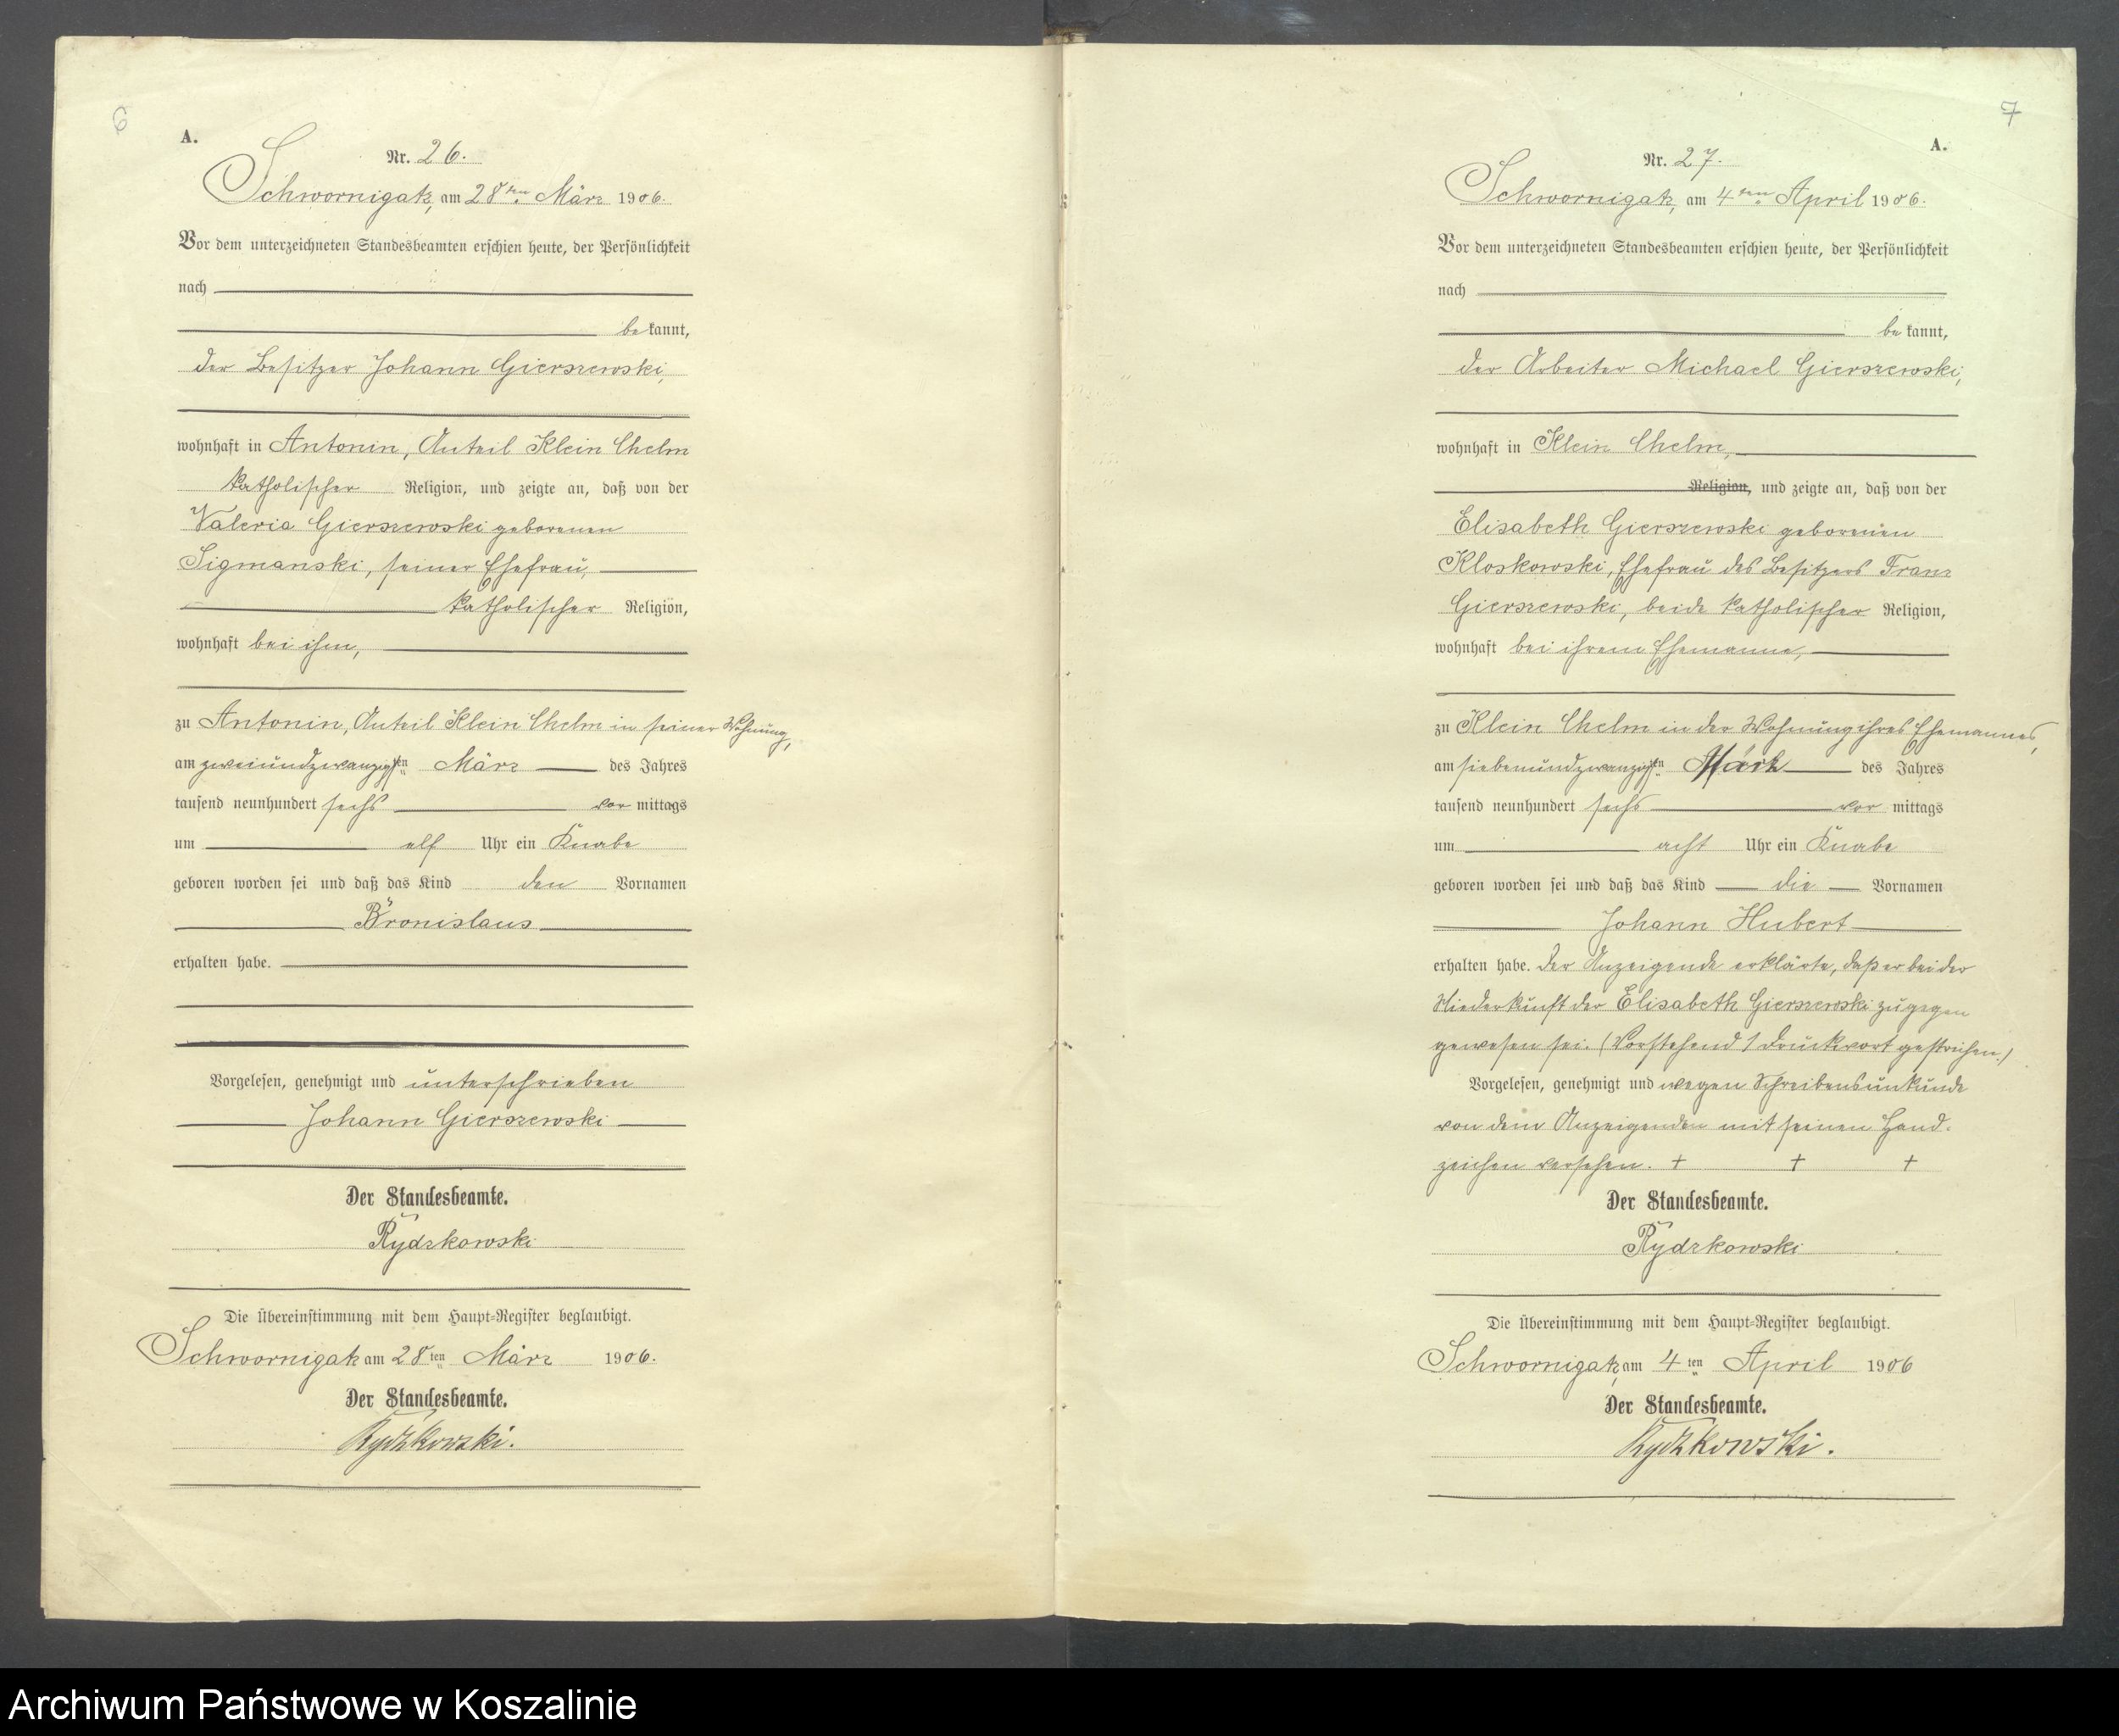 6
A.
Nr. 26.
Schwornigatz, am 28ten März 1906.
Vor dem unterzeichneten Standesbeamten erschien heute, der Persönlichkeit
nach
bekannt,
der Besitzer Johann Gierszewski,
wohnhaft in Antonin, Anteil Klein Chelm
katholischer Religion, und zeigte an, daß von der
Valeria Gierszewski geborenen
Sigmanski, seiner Ehefrau,
katholischer Religion,
wohnhaft bei ihm,
zu Antonin, Anteil Klein Chelm in seiner Wohnung,
am zweiundzwanzigsten März des Jahres
tausend neunhundert sechs vor mittags
um elf Uhr ein Knabe
geboren worden sei und daß das Kind den Vornamen
Bronislaus
erhalten habe.
Vorgelesen, genehmigt und unterschrieben
Johann Gierszewski
Der Standesbeamte.
Rydzkowski
Die Übereinstimmung mit dem Haupt-Register beglaubigt.
Schwornigatz am 28ten März 1906.
Der Standesbeamte.
Rydzkowski.
7
A.
Nr. 27.
Schwornigatz, am 4ten April 1906.
Vor dem unterzeichneten Standesbeamten erschien heute, der Persönlichkeit
nach
bekannt,
der Arbeiter Michael Gierszewski,
wohnhaft in Klein Chelm,
Religion, und zeigte an, daß von der
Elisabeth Gierszewski geborenen
Kloskowski, Ehefrau des Besitzers Franz
Gierszewski, beide katholischer Religion,
wohnhaft bei ihrem Ehemanne,
zu Klein Chelm in der Wohnung ihres Ehemannes,
am siebenundzwanzigsten März des Jahres
tausend neunhundert sechs vor mittags
um acht Uhr ein Knabe
geboren worden sei und daß das Kind die Vornamen
Johann Hubert
erhalten habe. Der Anzeigende erklärte, daß er bei der
Niederkunft der Elisabeth Gierszewski zugegen
gewesen sei. (Vorstehend 1 Druckwort gestrichen.)
Vorgelesen, genehmigt und wegen Schreibensunkunde
von dem Anzeigenden mit seinen Hand-
zeichen versehen. + + +
Der Standesbeamte.
Rydzkowski
Die Übereinstimmung mit dem Haupt-Register beglaubigt.
Schwornigatz, am 4ten April 1906
Der Standesbeamte.
Rydzkowski.
Archiwum Państwowe w Koszalinie